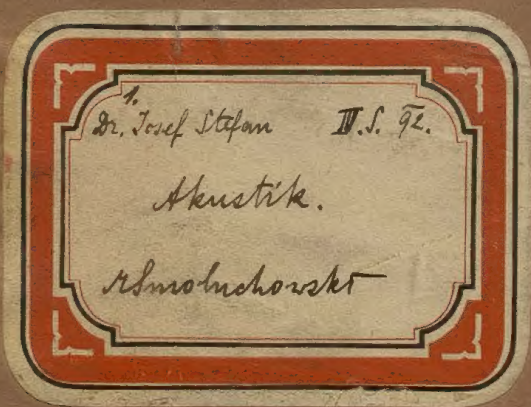 1.
Dr. Josef Stefan IV.S. 92.
Akustik.
MSmoluchowski